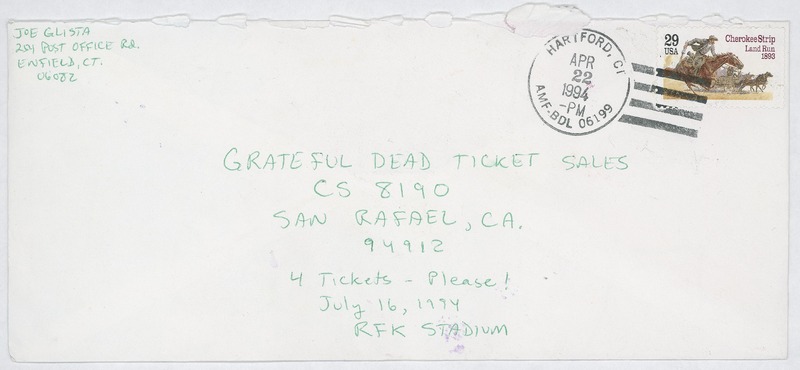 JOE GLISTA
204 POST OFFICE RD.
ENFIELD, CT.
06082
HARTFORD, CT
APR
22
1994
-PM
AMF-BDL 06199
29
USA
Cherokee Strip
Land Run
1893
GRATEFUL DEAD TICKET SALES
CS 8190
SAN RAFAEL, CA.
94912
4 Tickets - Please!
July 16, 1994
RFK STADIUM